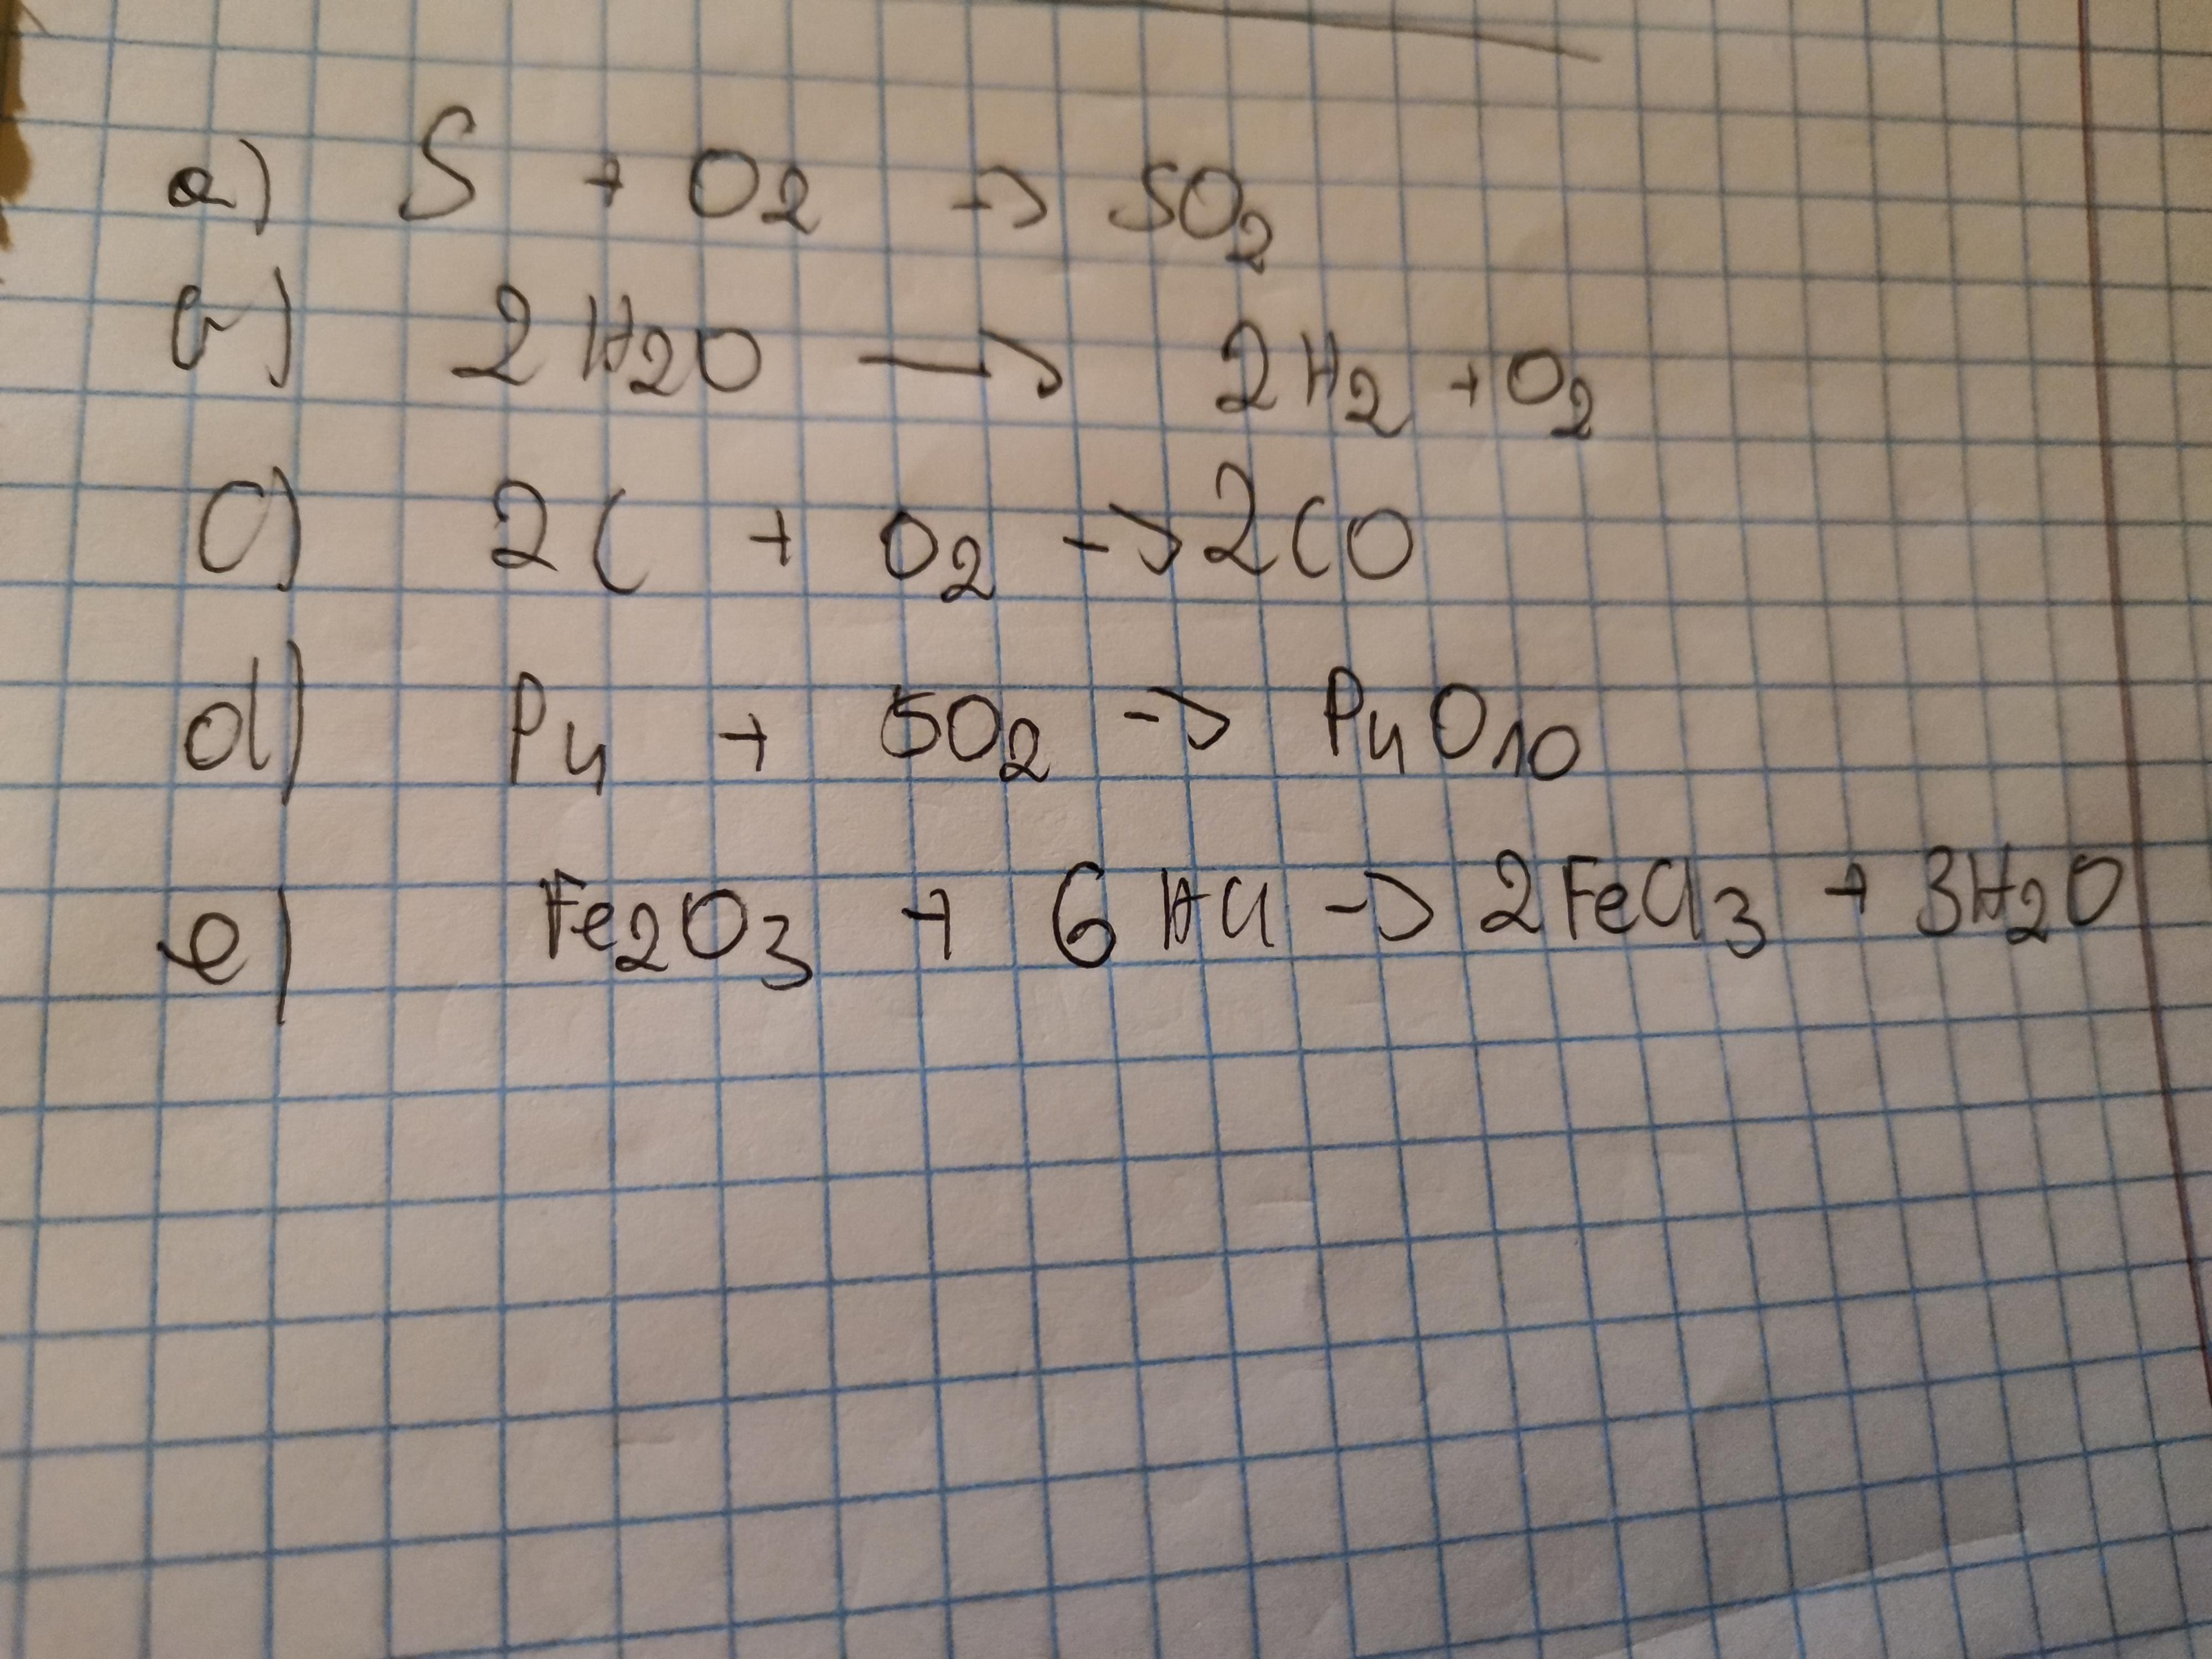 a) S + O₂ → SO₂
b) 2H₂O → 2H₂ + O₂
c) 2C + O₂ → 2CO
d) P₄ + 5O₂ → P₄O₁₀
e) Fe₂O₃ + 6HCl → 2FeCl₃ + 3H₂O